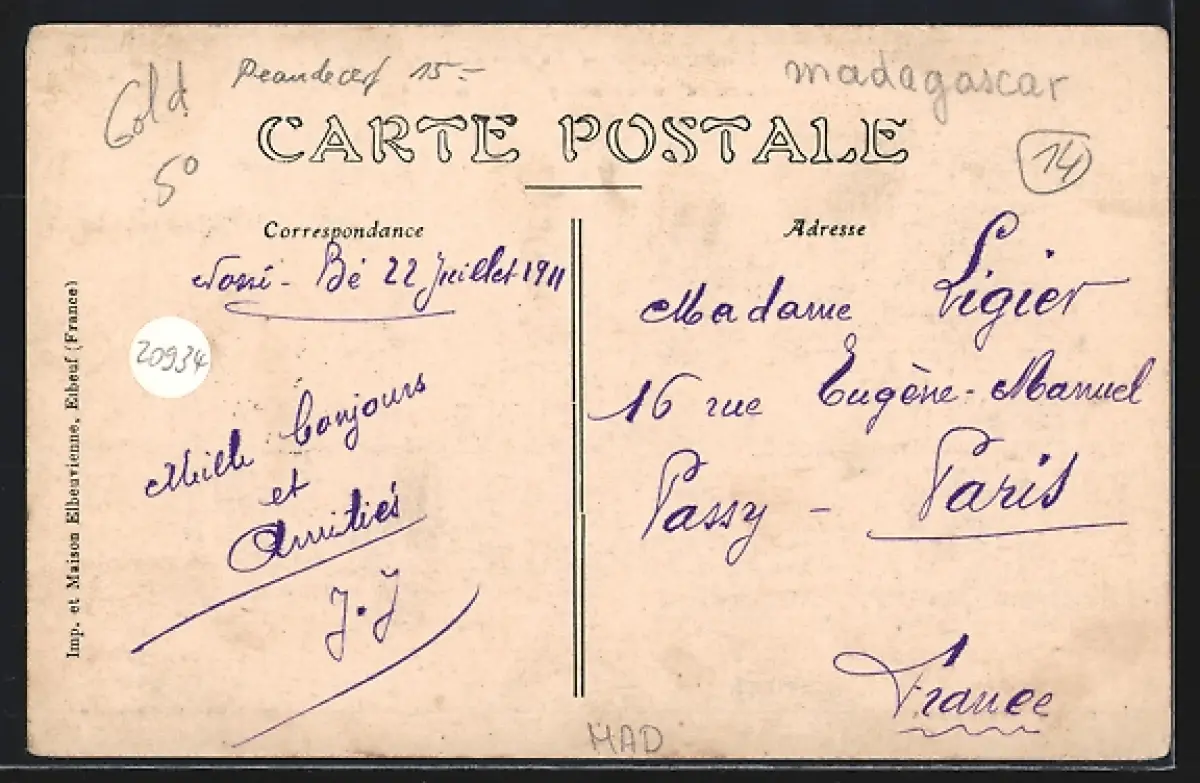 Madagascar
15.-
CARTE POSTALE
5°
14
Correspondance
Adresse
Nossi-Bé 22 Juillet 1911
Madame Ligier
20934
16 rue Eugène-Manuel
Mille bonjours
et
Amitiés
J.J
Passy - Paris
France
MAD
Imp. et Maison Elbeuvienne, Elbeuf (France)